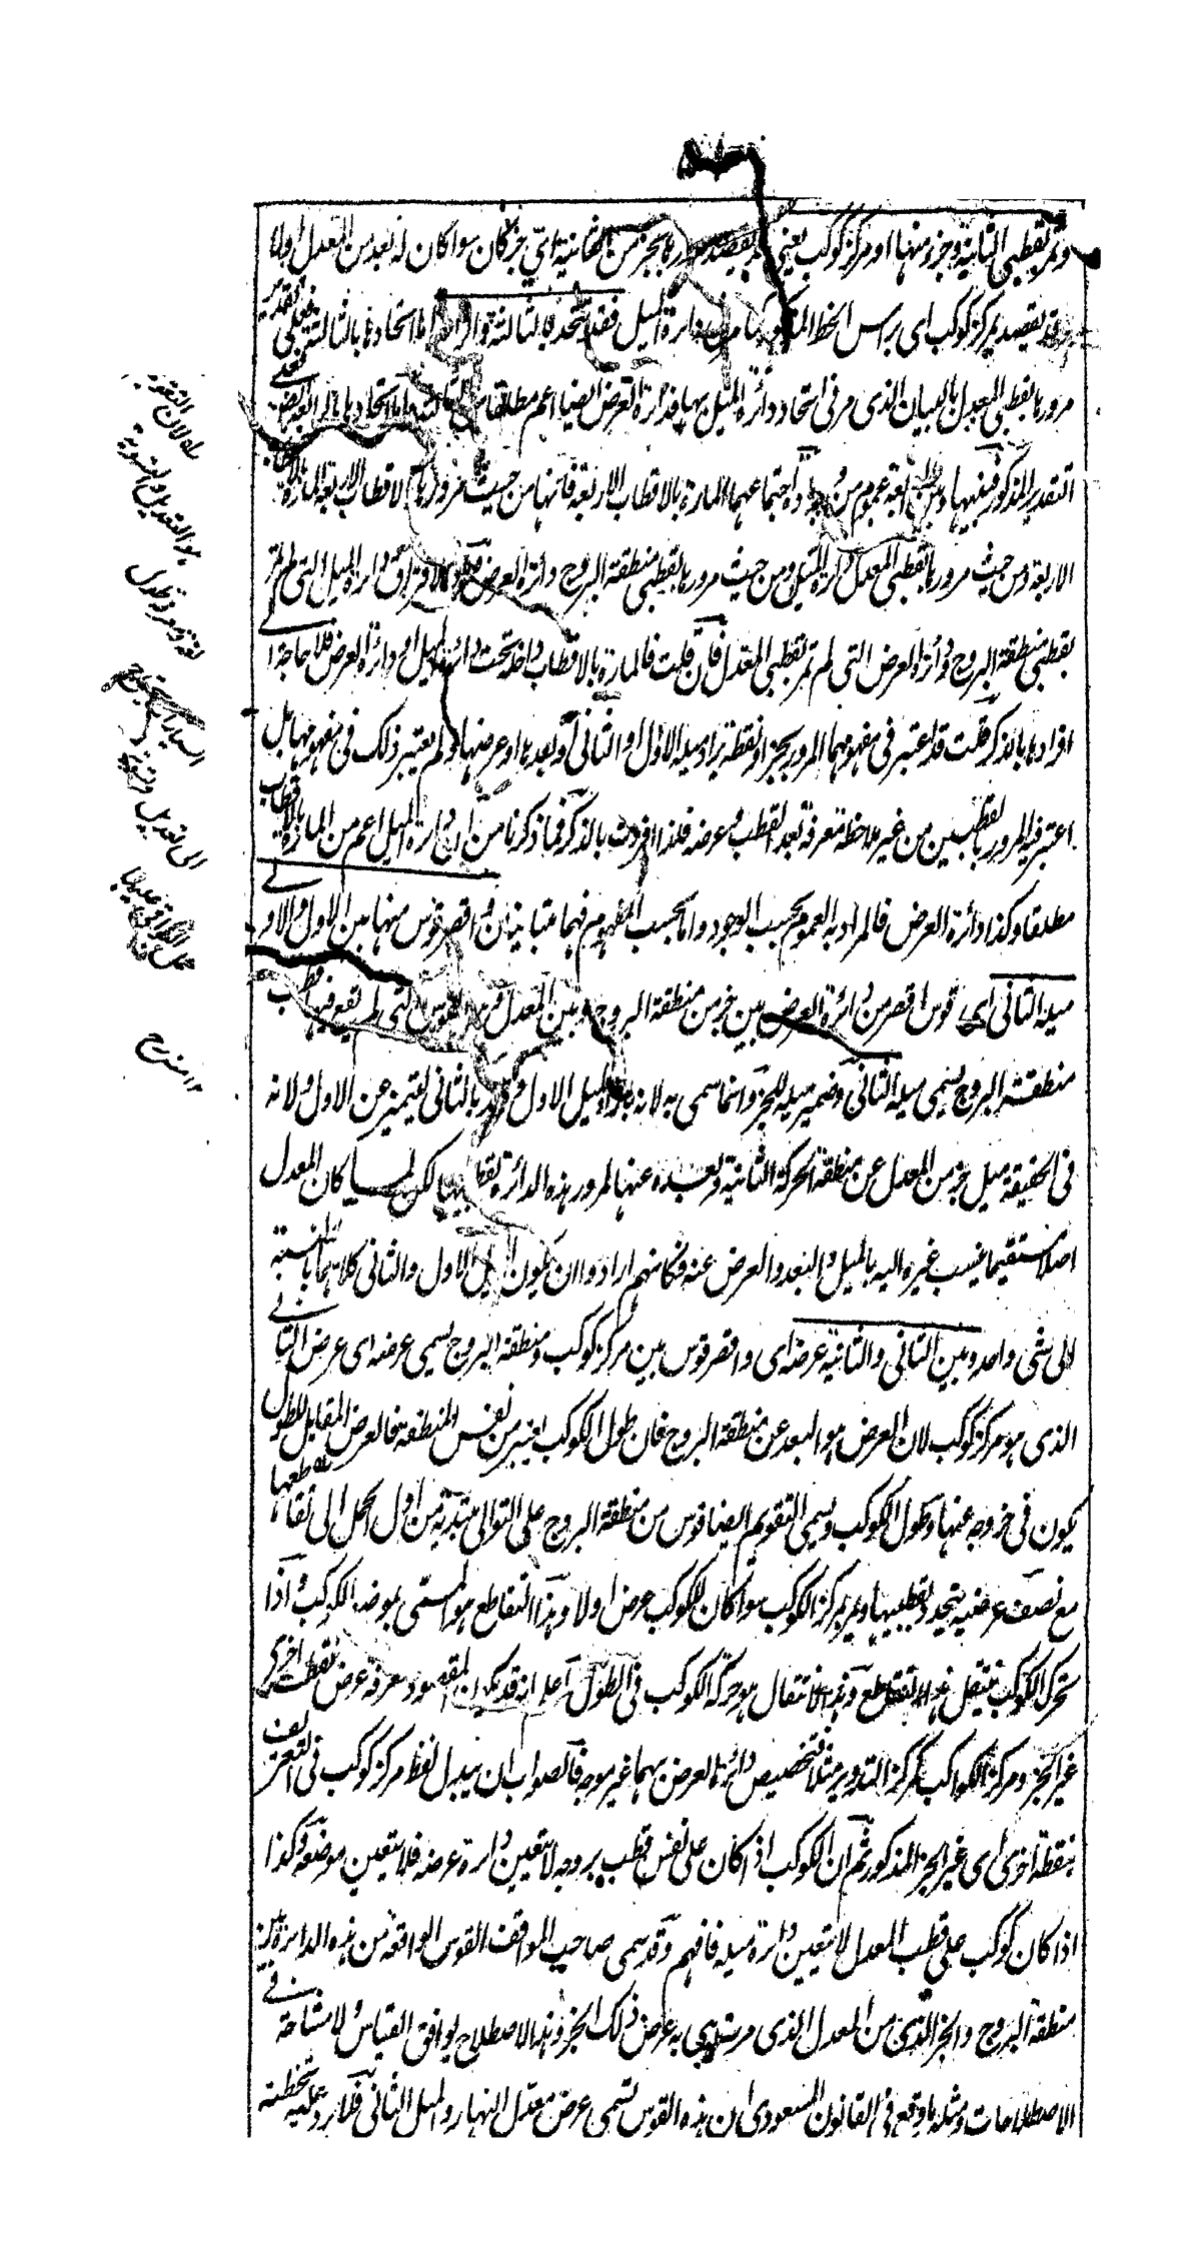 وتمر بقطبي الثانية وجزء منها او مركز كوكب يعني يقصد مرورها بجزء من الثانية اي جزء كان سواء كان له بعد من المعدل اولا
يقصد بمركز كوكب اى راس الخط من دائرة الميل فقد تتحد بالثالثة والرابعة اما اتحادها بالثالثة فعلى تقدير
مرورها بقطبي المعدل بالبيان الذى مر فى اتحاد دائرة الميل بها فدائرة العرض ايضا اعم مطلقا من الثالثة واما اتحادها بالرابعة فعلى
التقدير المذكور فبينها وبين الرابعة عموم من وجه مادة اجتماعهما المارة بالاقطاب الاربعة فانها من حيث مرورها بالاقطاب الاربعة المارة بالاقطاب
الاربعة ومن حيث مرورها بقطبي المعدل دائرة الميل ومن حيث مرورها بقطبي منطقة البروج دائرة العرض ومادة الافتراق دائرة الميل التى لم تمر
بقطبي منطقة البروج ودائرة العرض التى لم تمر بقطبي المعدل فان قلت فالمارة بالاقطاب داخلة تحت دائرة الميل او دائرة العرض فلا حاجة الى
افرادها بالذكر قلت قد اعتبر فى مفهومهما المرور بجزء او نقطة يراد ميله الاول او الثانى او بعدها او عرضها ولم يعتبر ذلك فى مفهومها بل
اعتبر فيه المرور بالقطبين من غير ملاحظة معرفة بعد القطب وعرضه فلذا افردت بالذكر فما ذكرنا من ان دائرة الميل اعم من المارة بالاقطاب
مطلقا وكذا دائرة العرض فالمراد به العموم بحسب الوجود واما بحسب المفهوم فهما متباينان واقصر قوس منها بين الاول والاو
ميله الثانى اى قوس اقصر من دائرة العرض بين جزء من منطقة البروج وبين المعدل من القوس التى لم يقع فيها قطب
منطقة البروج يسمى ميله الثانى وضمير ميله للجزء وانما سمى به لانه بازاء الميل الاول وقيد بالثانى ليتميز عن الاول ولانه
فى الحقيقة ميل جزء من المعدل عن منطقة الحركة الثانية وبعده عنها لمرور هذه الدائرة بقطبيها لكن لما كان المعدل
اصلا مستقيما ينسب غيره اليه بالميل والبعد والعرض عنه فكانهم ارادوا ان يكون الميل الاول والثانى كلاهما بالنسبة
الى شى واحد وبين الثانى والثانية عرضه اى واقصر قوس بين مركز كوكب ومنطقة البروج يسمى عرضه اى عرض الثانى
الذى هو مركز كوكب لان العرض هو البعد عن منطقة البروج فان طول الكوكب اعتبر من نفس المنطقة فالعرض المقابل للطول
يكون فى خروجه عنها وطول الكوكب ويسمى التقويم ايضا قوس من منطقة البروج على التوالى مبتدئة من اول الحمل الى تقاطعها
مع نصف عرضية يتحدد بقطبيها ويمر بمركز الكوكب سواء كان للكوكب عرض اولا وهذا التقاطع هو المسمى بموضع الكوكب واذا
تحرك الكوكب ينتقل هذا التقاطع وهذا الانتقال هو حركة الكوكب فى الطول اعلم انه قد يكون المقصود معرفة عرض نقطة اخرى
غير الجزء ومركز الكواكب كمركز التدوير مثلا فتخصيص دائرة العرض بهما غير موجه فالصواب ان يبدل لفظ مركز كوكب فى التعريف
بنقطة اخرى اى غير الجزء المذكور ثم ان الكوكب اذا كان على نفس قطب بروجه لا يتعين دائرة عرضه فلا يتعين موضعه وكذا
اذا كان كوكب على قطب المعدل لا يتعين دائرة ميله فافهم وقد سمى صاحب المواقف القوس الواقعة من هذه الدائرة بين
منطقة البروج والجزء الذى من المعدل الذى مرت به عرض ذلك الجزء وهذا الاصطلاح يوافق القياس ولا مشاحة فى
الاصطلاحات ومثله ما وقع فى القانون المسعودى ان هذه القوس تسمى عرض معدل النهار والميل الثانى فلا يرد عليه تخطئة
سله لان التقويم
هو التعديل والتسوية
لغة
السيارة
الى تعديل
١٢ منه